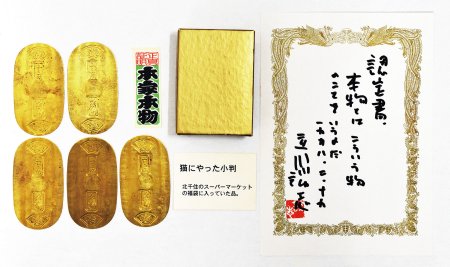 本家本物
猫にやった小判
北千住のスーパーマーケット
の福袋に入っていた品。
認定書.
本物とは こういう物
のことを いうのだ
一九九八・二・
立川談志